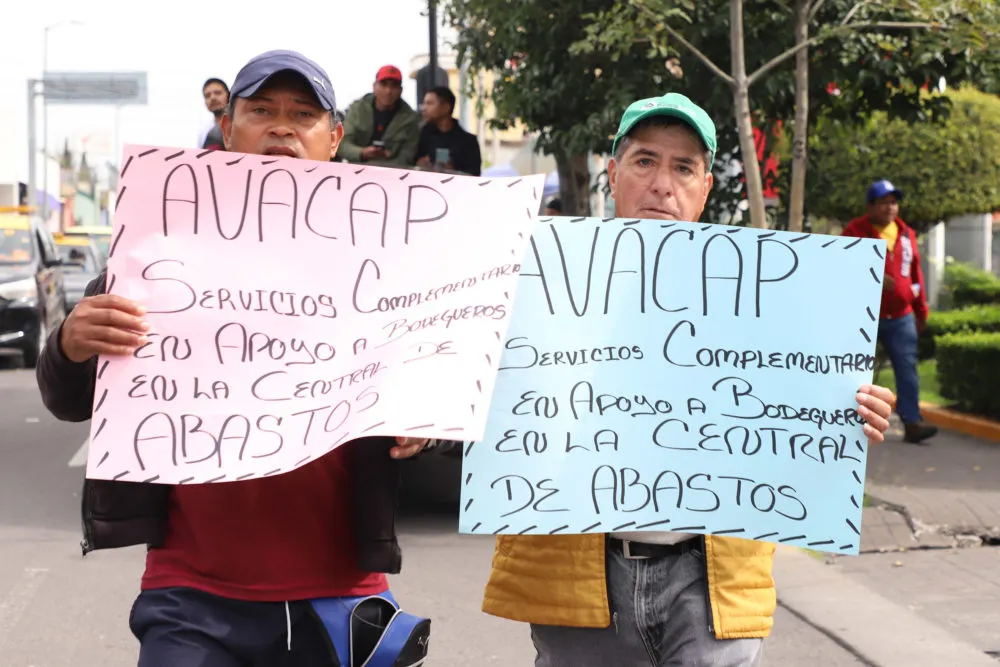 AVACAP
SERVICIOS COMPLEMENTARIO
EN APOYO A BODEGUEROS
EN LA CENTRAL DE
ABASTOS
AVACAP
SERVICIOS COMPLEMENTARIO
EN APOYO A BODEGUERO
EN LA CENTRAL
DE ABASTOS